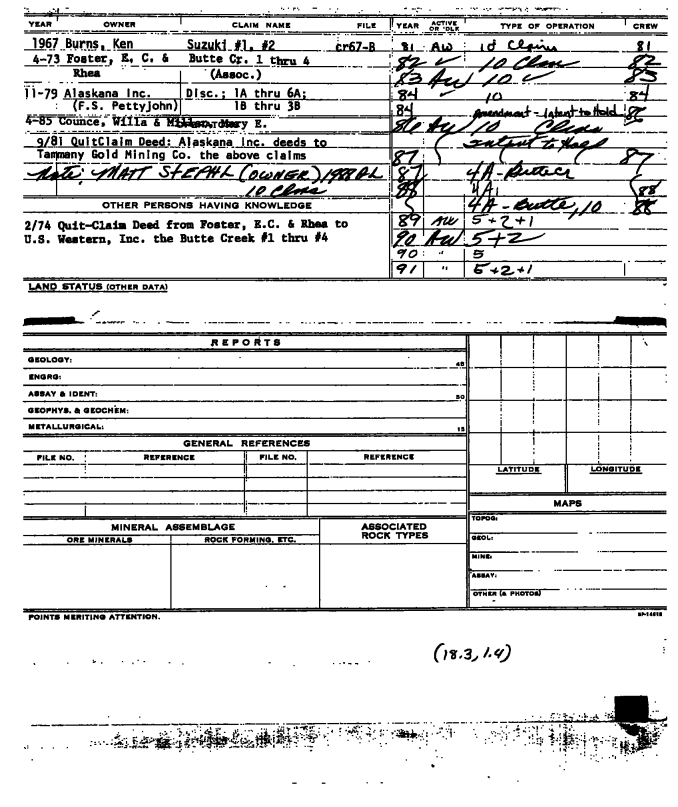 YEAR OWNER CLAIM NAME FILE YEAR ACTIVE OR IDLE TYPE OF OPERATION CREW
1967 Burns, Ken Suzuki #1, #2 cr67-B 81 AW 10 Claims 81
4-73 Foster, E. C. & Butte Cr. 1 thru 4 82 ✓ 10 Clms 82
Rhea (Assoc.) 83 AW 10 ✓ 83
11-79 Alaskana Inc. Disc.; 1A thru 6A; 84 ✓ 10 84
(F.S. Pettyjohn) 1B thru 3B 84 Amendment - Intent to Hold
4-85 Counce, Willa & Mary E. 86 AW 10 Clms
9/81 QuitClaim Deed: Alaskana Inc. deeds to Intent to Hold
Tammany Gold Mining Co. the above claims 87 87
Note: MATT STEPHL (OWNER) 1988 AL 87 4A - Butte Cr
10 Clms 88 4A 88
OTHER PERSONS HAVING KNOWLEDGE 4A - Butte, 10 88
2/74 Quit-Claim Deed from Foster, E.C. & Rhea to 89 AW 5+2+1
U.S. Western, Inc. the Butte Creek #1 thru #4 90 AW 5+2
90 " 5
91 " 5+2+1
LAND STATUS (OTHER DATA)
REPORTS
GEOLOGY: 45
ENGRG:
ASSAY & IDENT: 30
GEOPHYS. & GEOCHEM:
METALLURGICAL: 15
GENERAL REFERENCES
FILE NO. REFERENCE FILE NO. REFERENCE
LATITUDE LONGITUDE
MAPS
MINERAL ASSEMBLAGE ASSOCIATED ROCK TYPES
ORE MINERALS ROCK FORMING, ETC.
TOPOG:
GEOL:
MINE:
ASSAY:
OTHER (& PHOTOS)
POINTS MERITING ATTENTION.
(18.3, 1.4)